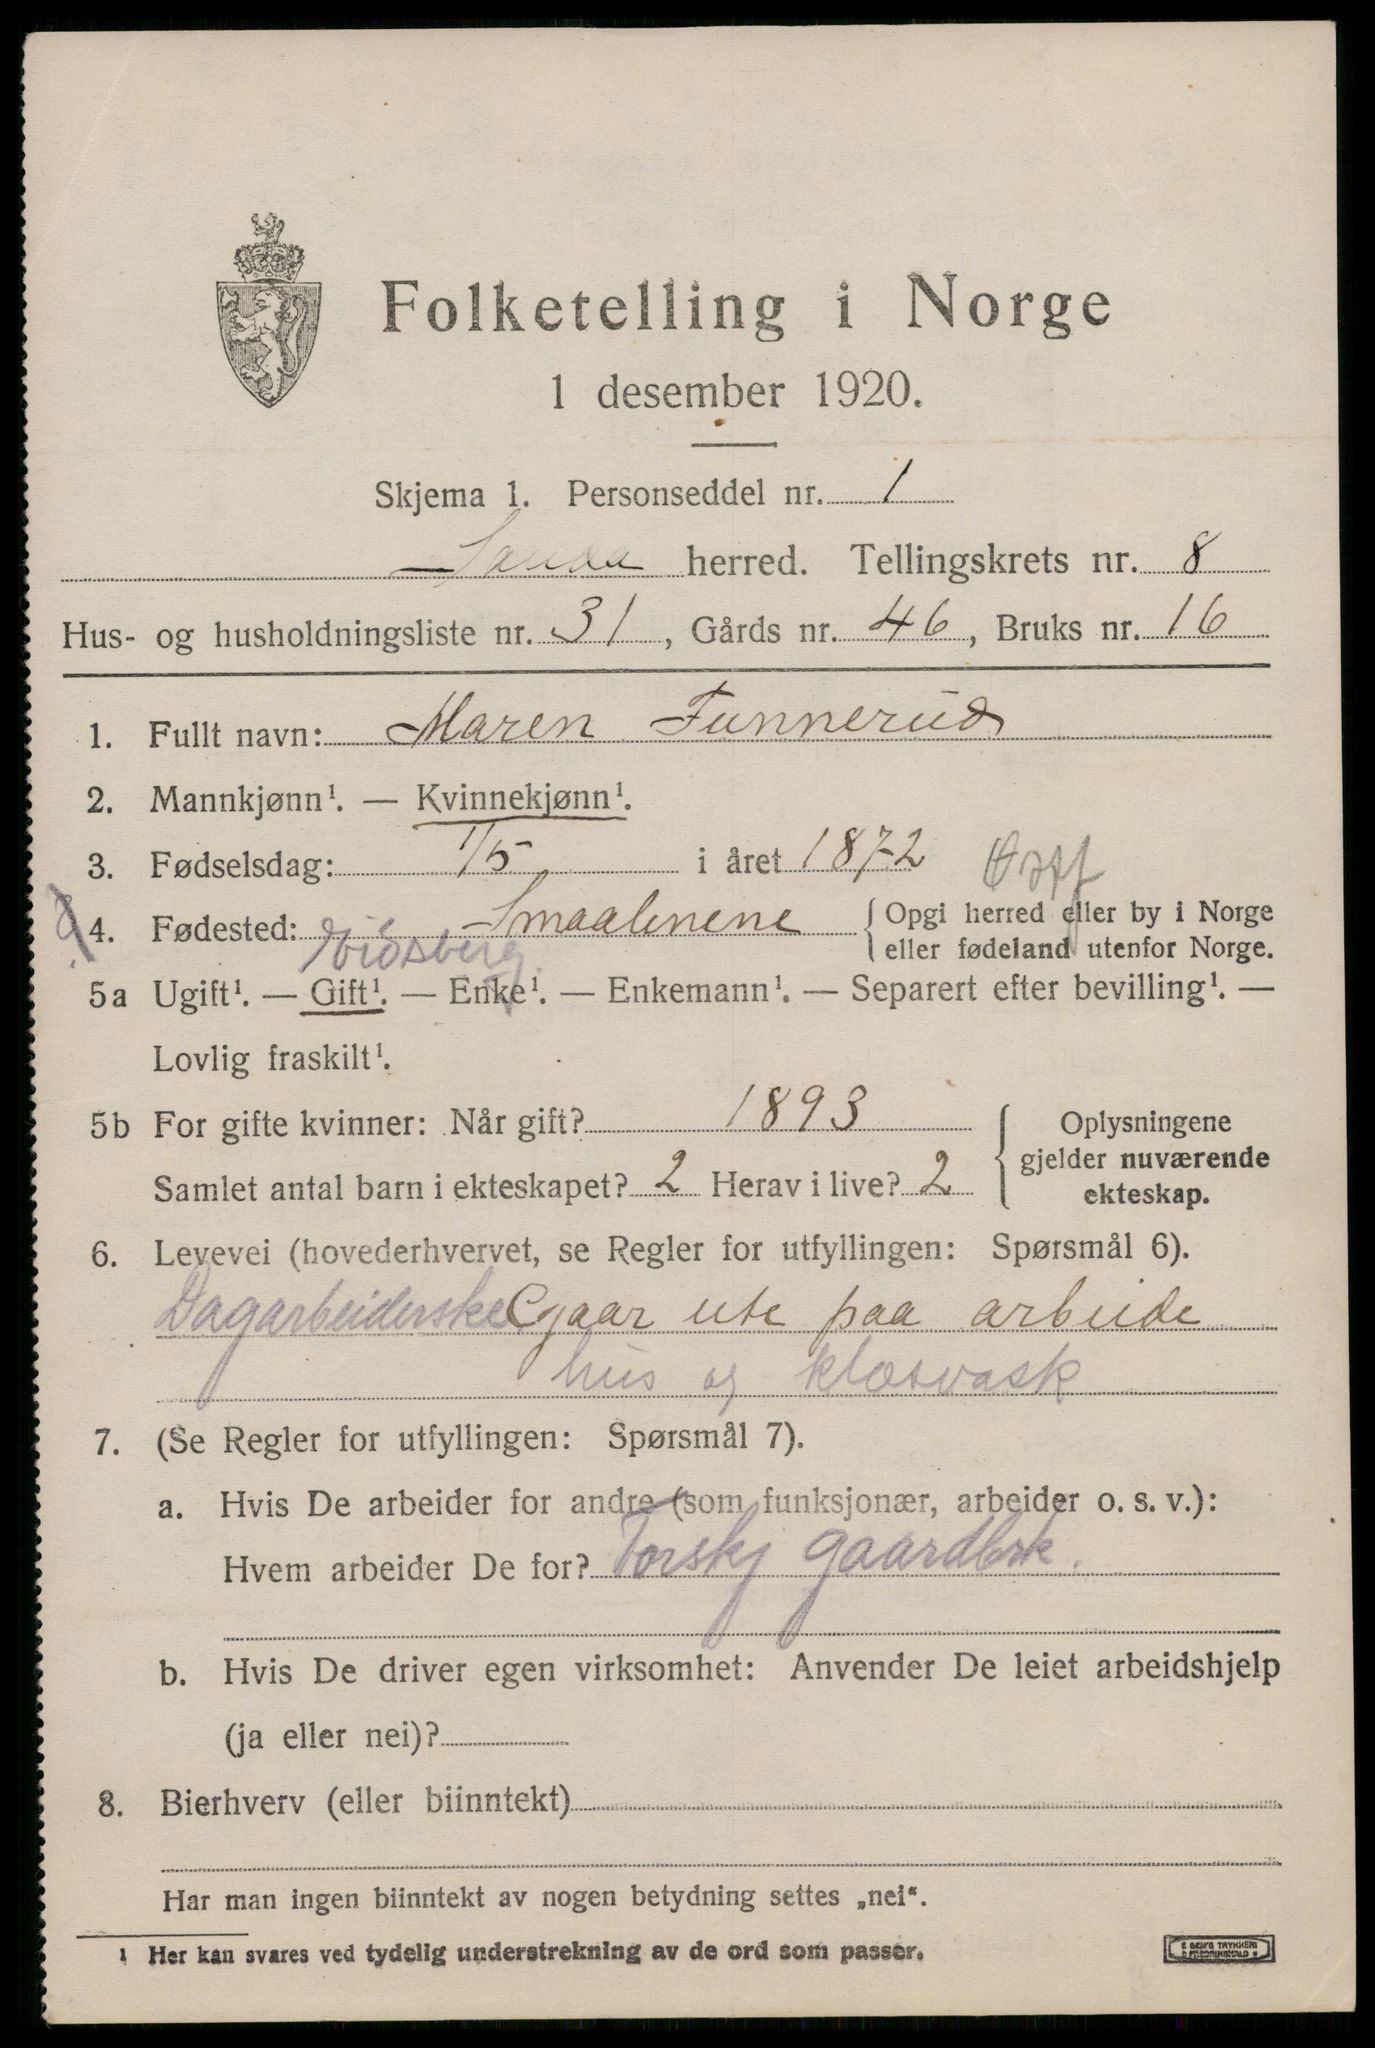 Folketelling i Norge
1 desember 1920.
Skjema 1. Personseddel nr. 1
Sauda herred. Tellingskrets nr. 8
Hus- og husholdningsliste nr. 31, Gårds nr. 46, Bruks nr. 16
1. Fullt navn: Maren Funnerud
2. Mannkjønn¹. — Kvinnekjønn¹.
3. Fødselsdag: 1/5 i året 1872
4. Fødested: Smaalenene { Opgi herred eller by i Norge
eller fødeland utenfor Norge.
Eidsberg
5a Ugift¹. — Gift¹. — Enke¹. — Enkemann¹. — Separert efter bevilling¹. —
Lovlig fraskilt¹.
5b For gifte kvinner: Når gift? 1893
Samlet antal barn i ekteskapet? 2 Herav i live? 2
{ Oplysningene
gjelder nuværende
ekteskap.
6. Levevei (hovederhvervet, se Regler for utfyllingen: Spørsmål 6).
Dagarbeiderske gaar ute paa arbeide
hus og klæsvask
7. (Se Regler for utfyllingen: Spørsmål 7).
a. Hvis De arbeider for andre (som funksjonær, arbeider o. s. v.):
Hvem arbeider De for? Forskj gaardbrk.
b. Hvis De driver egen virksomhet: Anvender De leiet arbeidshjelp
(ja eller nei)?
8. Bierhverv (eller biinntekt)
Har man ingen biinntekt av nogen betydning settes „nei“.
1 Her kan svares ved tydelig understrekning av de ord som passer.
E SEM'S TRYKKERI
FREDRIKSHALD